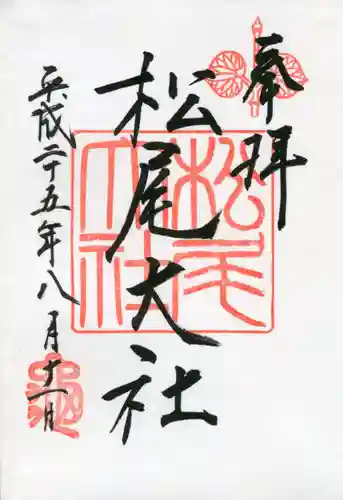 奉拝
松尾大社
平成二十五年八月十一日
松尾大社